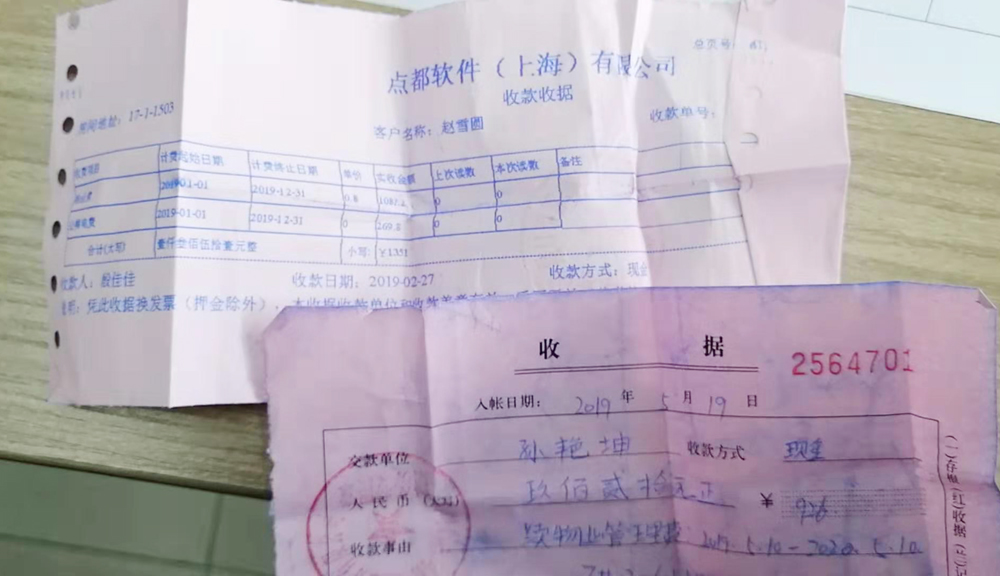 总页号:
点都软件（上海）有限公司
收款收据
房间地址: 17-1-1503
客户名称: 赵雪圆
收款单号:
收费项目 计费起始日期 计费终止日期 单价 实收金额 上次读数 本次读数 备注
2019-01-01 2019-12-31 0.8 1082. 0 0
2019-01-01 2019-12-31 0 269.8 0 0
合计(大写) 壹仟叁佰伍拾壹元整 小写: ￥1351
收款人: 殷佳佳 收款日期: 2019-02-27 收款方式: 现金
说明: 凭此收据换发票（押金除外），本收据收款单位和收款
收 据
2564701
入帐日期: 2019 年 5 月 19 日
交款单位 孙艳坤 收款方式 现金
人民币(大写) 玖佰贰拾 元正 ￥ 926
收款事由 物业管理费 2019.5.10-2020.5.10
(一)存根(红)收据(三)记